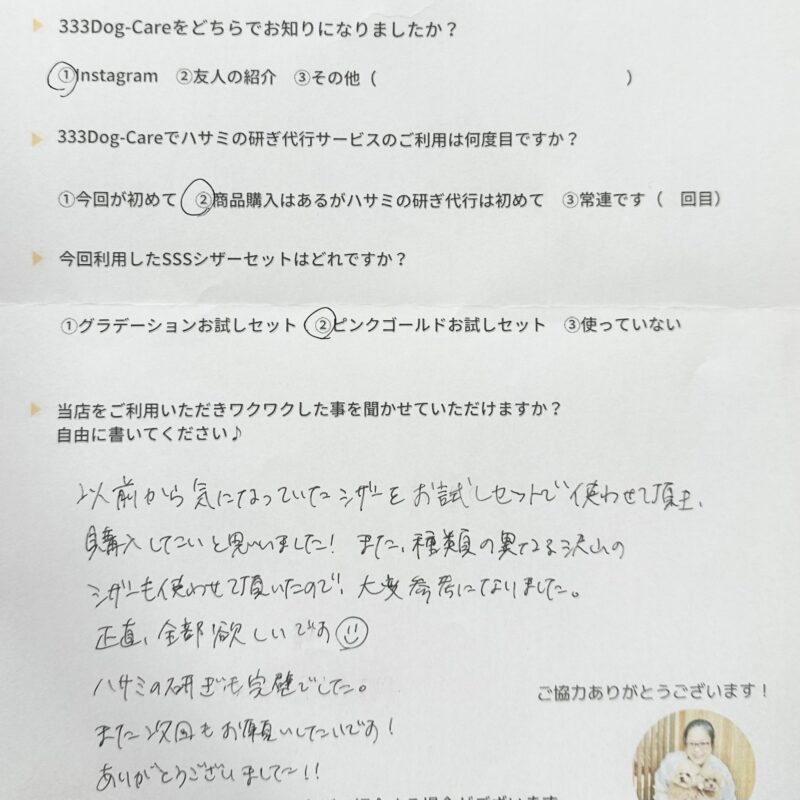 333Dog-Careをどちらでお知りになりましたか？
①Instagram ②友人の紹介 ③その他（ ）
333Dog-Careでハサミの研ぎ代行サービスのご利用は何度目ですか？
①今回が初めて ②商品購入はあるがハサミの研ぎ代行は初めて ③常連です（ 回目）
今回利用したSSSシザーセットはどれですか？
①グラデーションお試しセット ②ピンクゴールドお試しセット ③使っていない
当店をご利用いただきワクワクした事を聞かせていただけますか？
自由に書いてください♪
以前から気になっていたシザーをお試しセットで使わせて頂き、
購入したいと思いました！また、種類の異なる沢山の
シザーも使わせて頂いたので、大変参考になりました。
正直、全部欲しいです☺
ハサミの研ぎも完璧でした。
また次回もお願いしたいです！
ありがとうございました!!
ご協力ありがとうございます！